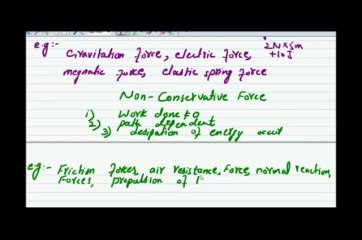 e.g:- Gravitation Force, electric Force,
2N × 5m
+10J
megnatic Force, elastic spring Force
Non-Conservative Force
i) Work done ≠ 0
2) path dependent
3) desipation of energy occut
e.g:- Friction Forces, air resistance, Force, normal reaction,
Forces, propulsion of